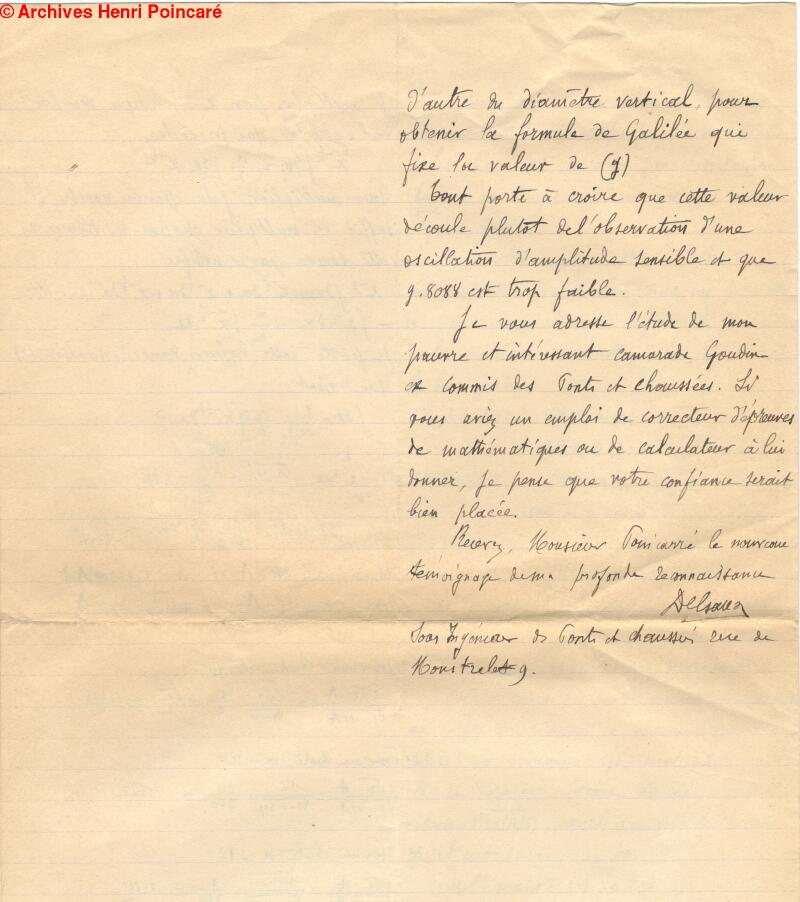 © Archives Henri Poincaré
d'autre du diamètre vertical, pour
obtenir la formule de Galilée qui
fixe la valeur de (g)
Tout porte à croire que cette valeur
découle plutot de l'observation d'une
oscillation d'amplitude sensible et que
9.8088 est trop faible.
Je vous adresse l'étude de mon
pauvre et intéressant camarade Goudin
ex commis des Ponts et chaussées. Si
vous aviez un emploi de correcteur d'épreuves
de mathématiques ou de calculateur à lui
donner, je pense que votre confiance serait
bien placée.
Recevez, Monsieur Poincarré le nouveau
témoignage de ma profonde reconnaissance
Sous Ingénieur des Ponts et chaussées rue de
Monstrelet 9.